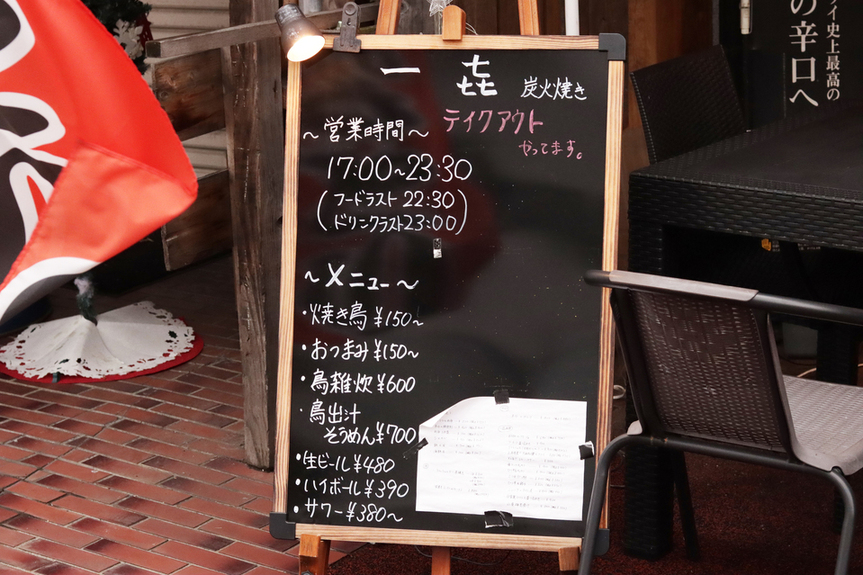 一 㐂 炭火焼き
テイクアウト
やってます。
～営業時間～
17:00～23:30
(フードラスト 22:30
ドリンクラスト23:00)
～メニュー～
・焼き鳥 ¥150～
・おつまみ ¥150～
・鳥雑炊 ¥600
・鳥出汁
そうめん ¥700
・生ビール ¥480
・ハイボール ¥390
・サワー ¥380～
イ史上最高の
の辛口へ